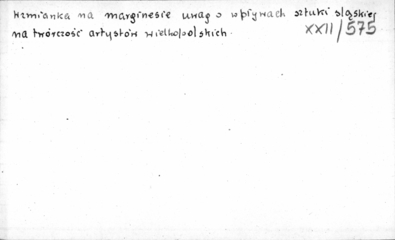 wzmianka na marginesie uwag o wpływach sztuki śląskiej
na twórczość artystów wielkopolskich.
XXII/575